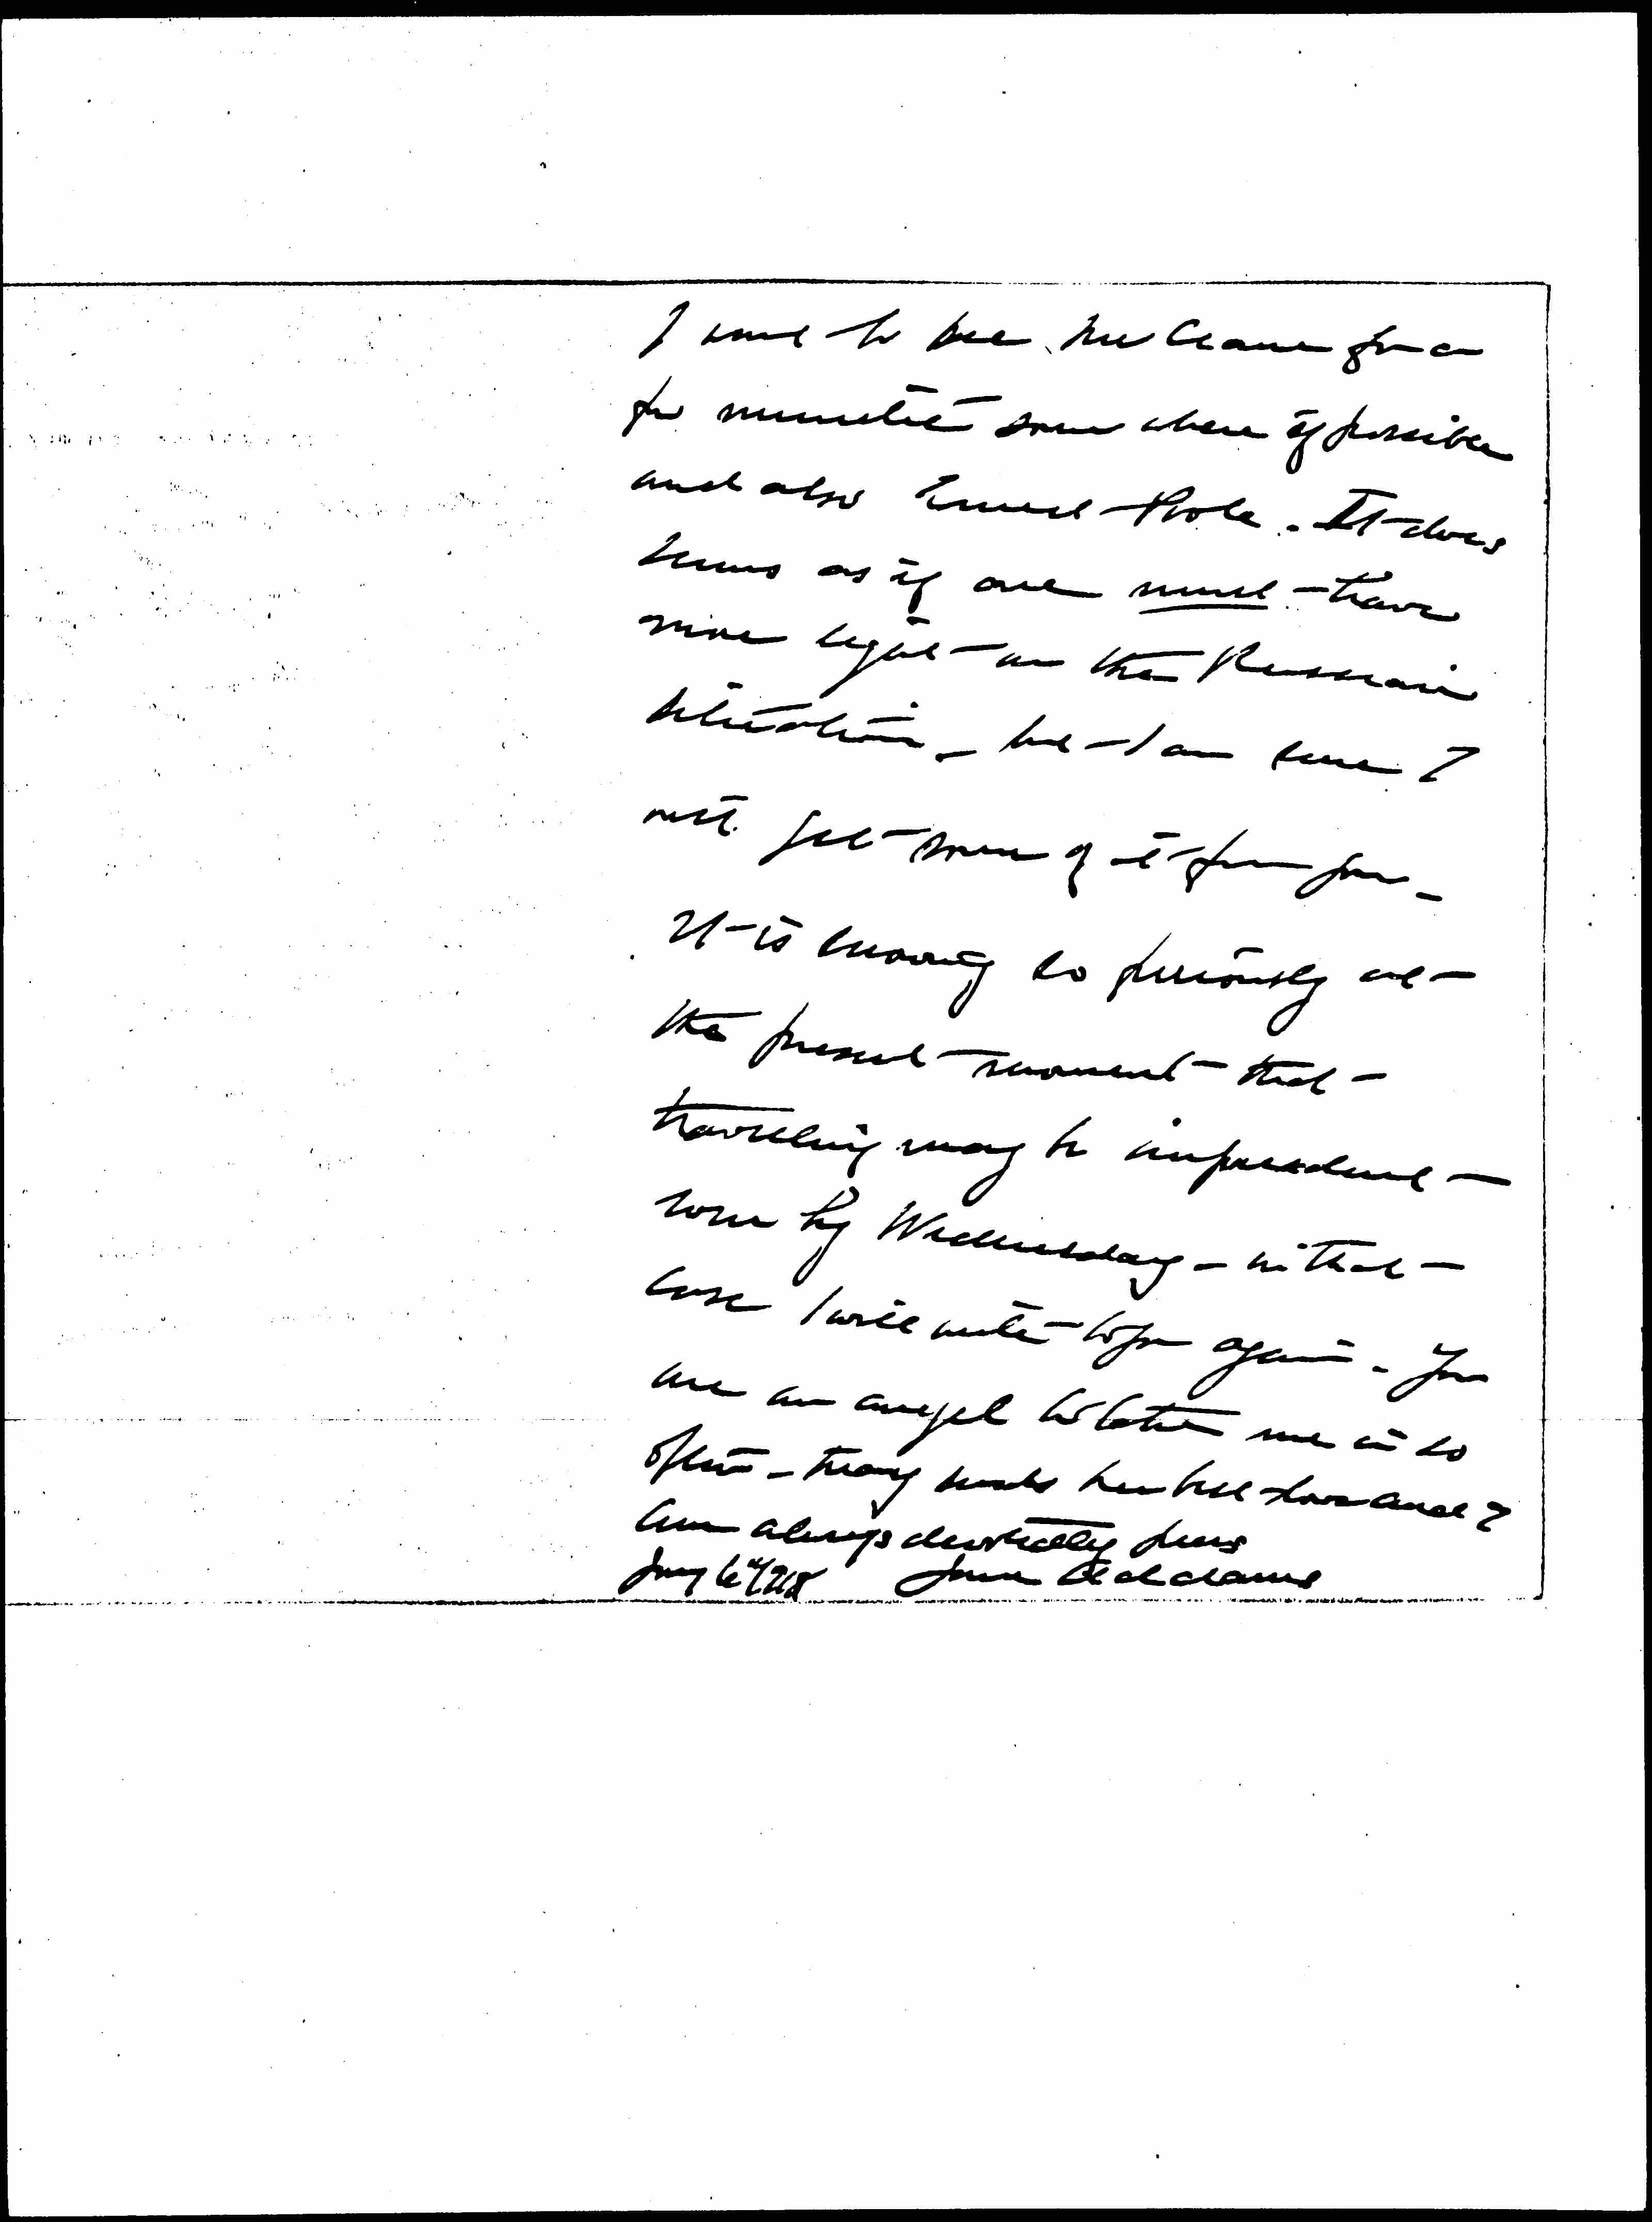 I want to see Mr Crane for a
few minutes some where if possible
and also Ernest Poole. It does
seems as if one must have
more light on the Russian
situation - but I am sure I
will get some of it from you -
It is snowing so furiously at
the present moment that
traveling may be imprudent
soon by Wednesday - in that
case I will write to you again. You
are an angel to take me in so
often - Mary sends her best love and I
am always devotedly yours
Jany 6" 1918 Jane Addams